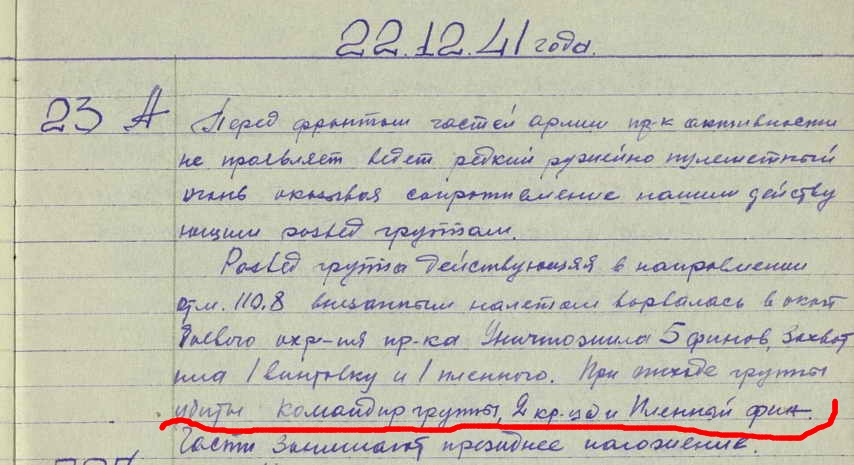 22.12.41 года.
23 А Перед фронтом частей армии пр-к активности
не проявляет ведет редкий ружейно пулеметный
огонь оказывая сопротивление нашим действу
ющим развед группам.
Развед группа действующая в направлении
отм. 110,8 внезапным налетом ворвалась в окоп
боевого охр-ния пр-ка Уничтожила 5 финов, захват
ила 1 винтовку и 1 пленного. При отходе группы
убиты командир группы, 2 кр-ца и Пленный фин.
Части занимают прежнее положение.